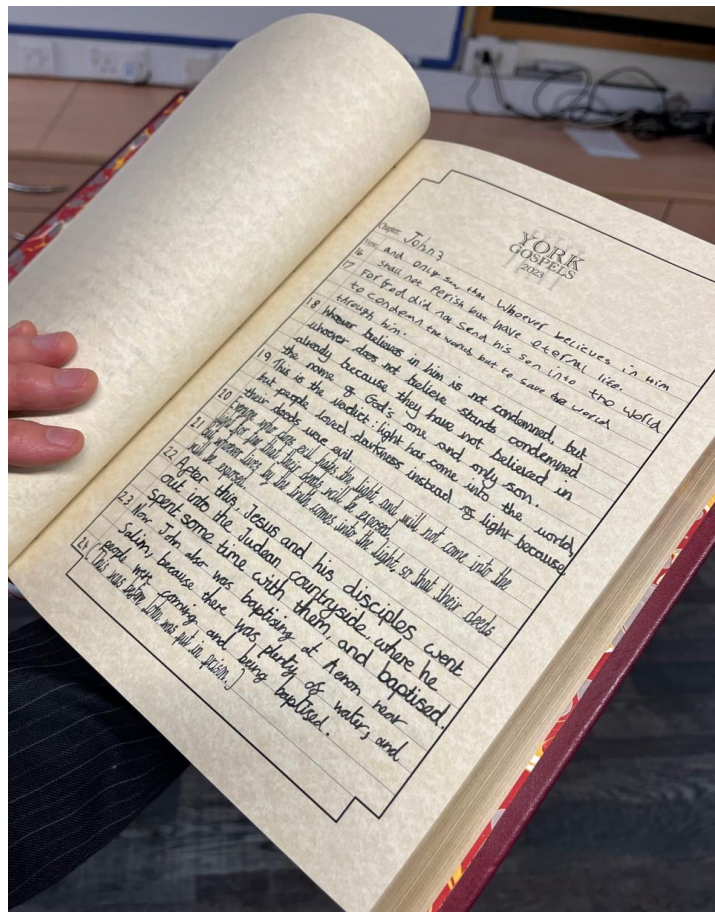 YORK
GOSPELS
2023
Chapter: John 3
Verse: and only son that whoever believes in Him
16 shall not perish but have eternal life.
17 For God did not send his son into the world
to condemn the world, but to save the world
through him.
18 Whoever believes in him is not condemned, but
whoever does not believe stands condemned
already because they have not believed in
the name of God's one and only son.
19 This is the verdict: light has come into the world,
but people loved darkness instead of light because
their deeds were evil
20 Everyone who does evil hates the light, and will not come into the
light for fear that their deeds will be exposed.
21 But whoever lives by the truth comes into the light, so that their deeds
will be exposed
22 After this, Jesus and his disciples went
out into the Judean countryside, where he
spent some time with them, and baptised.
23 Now John also was baptising at Aenon near
Salim, because there was plenty of water, and
people were coming and being baptised.
24 (This was before John was put in prison.)